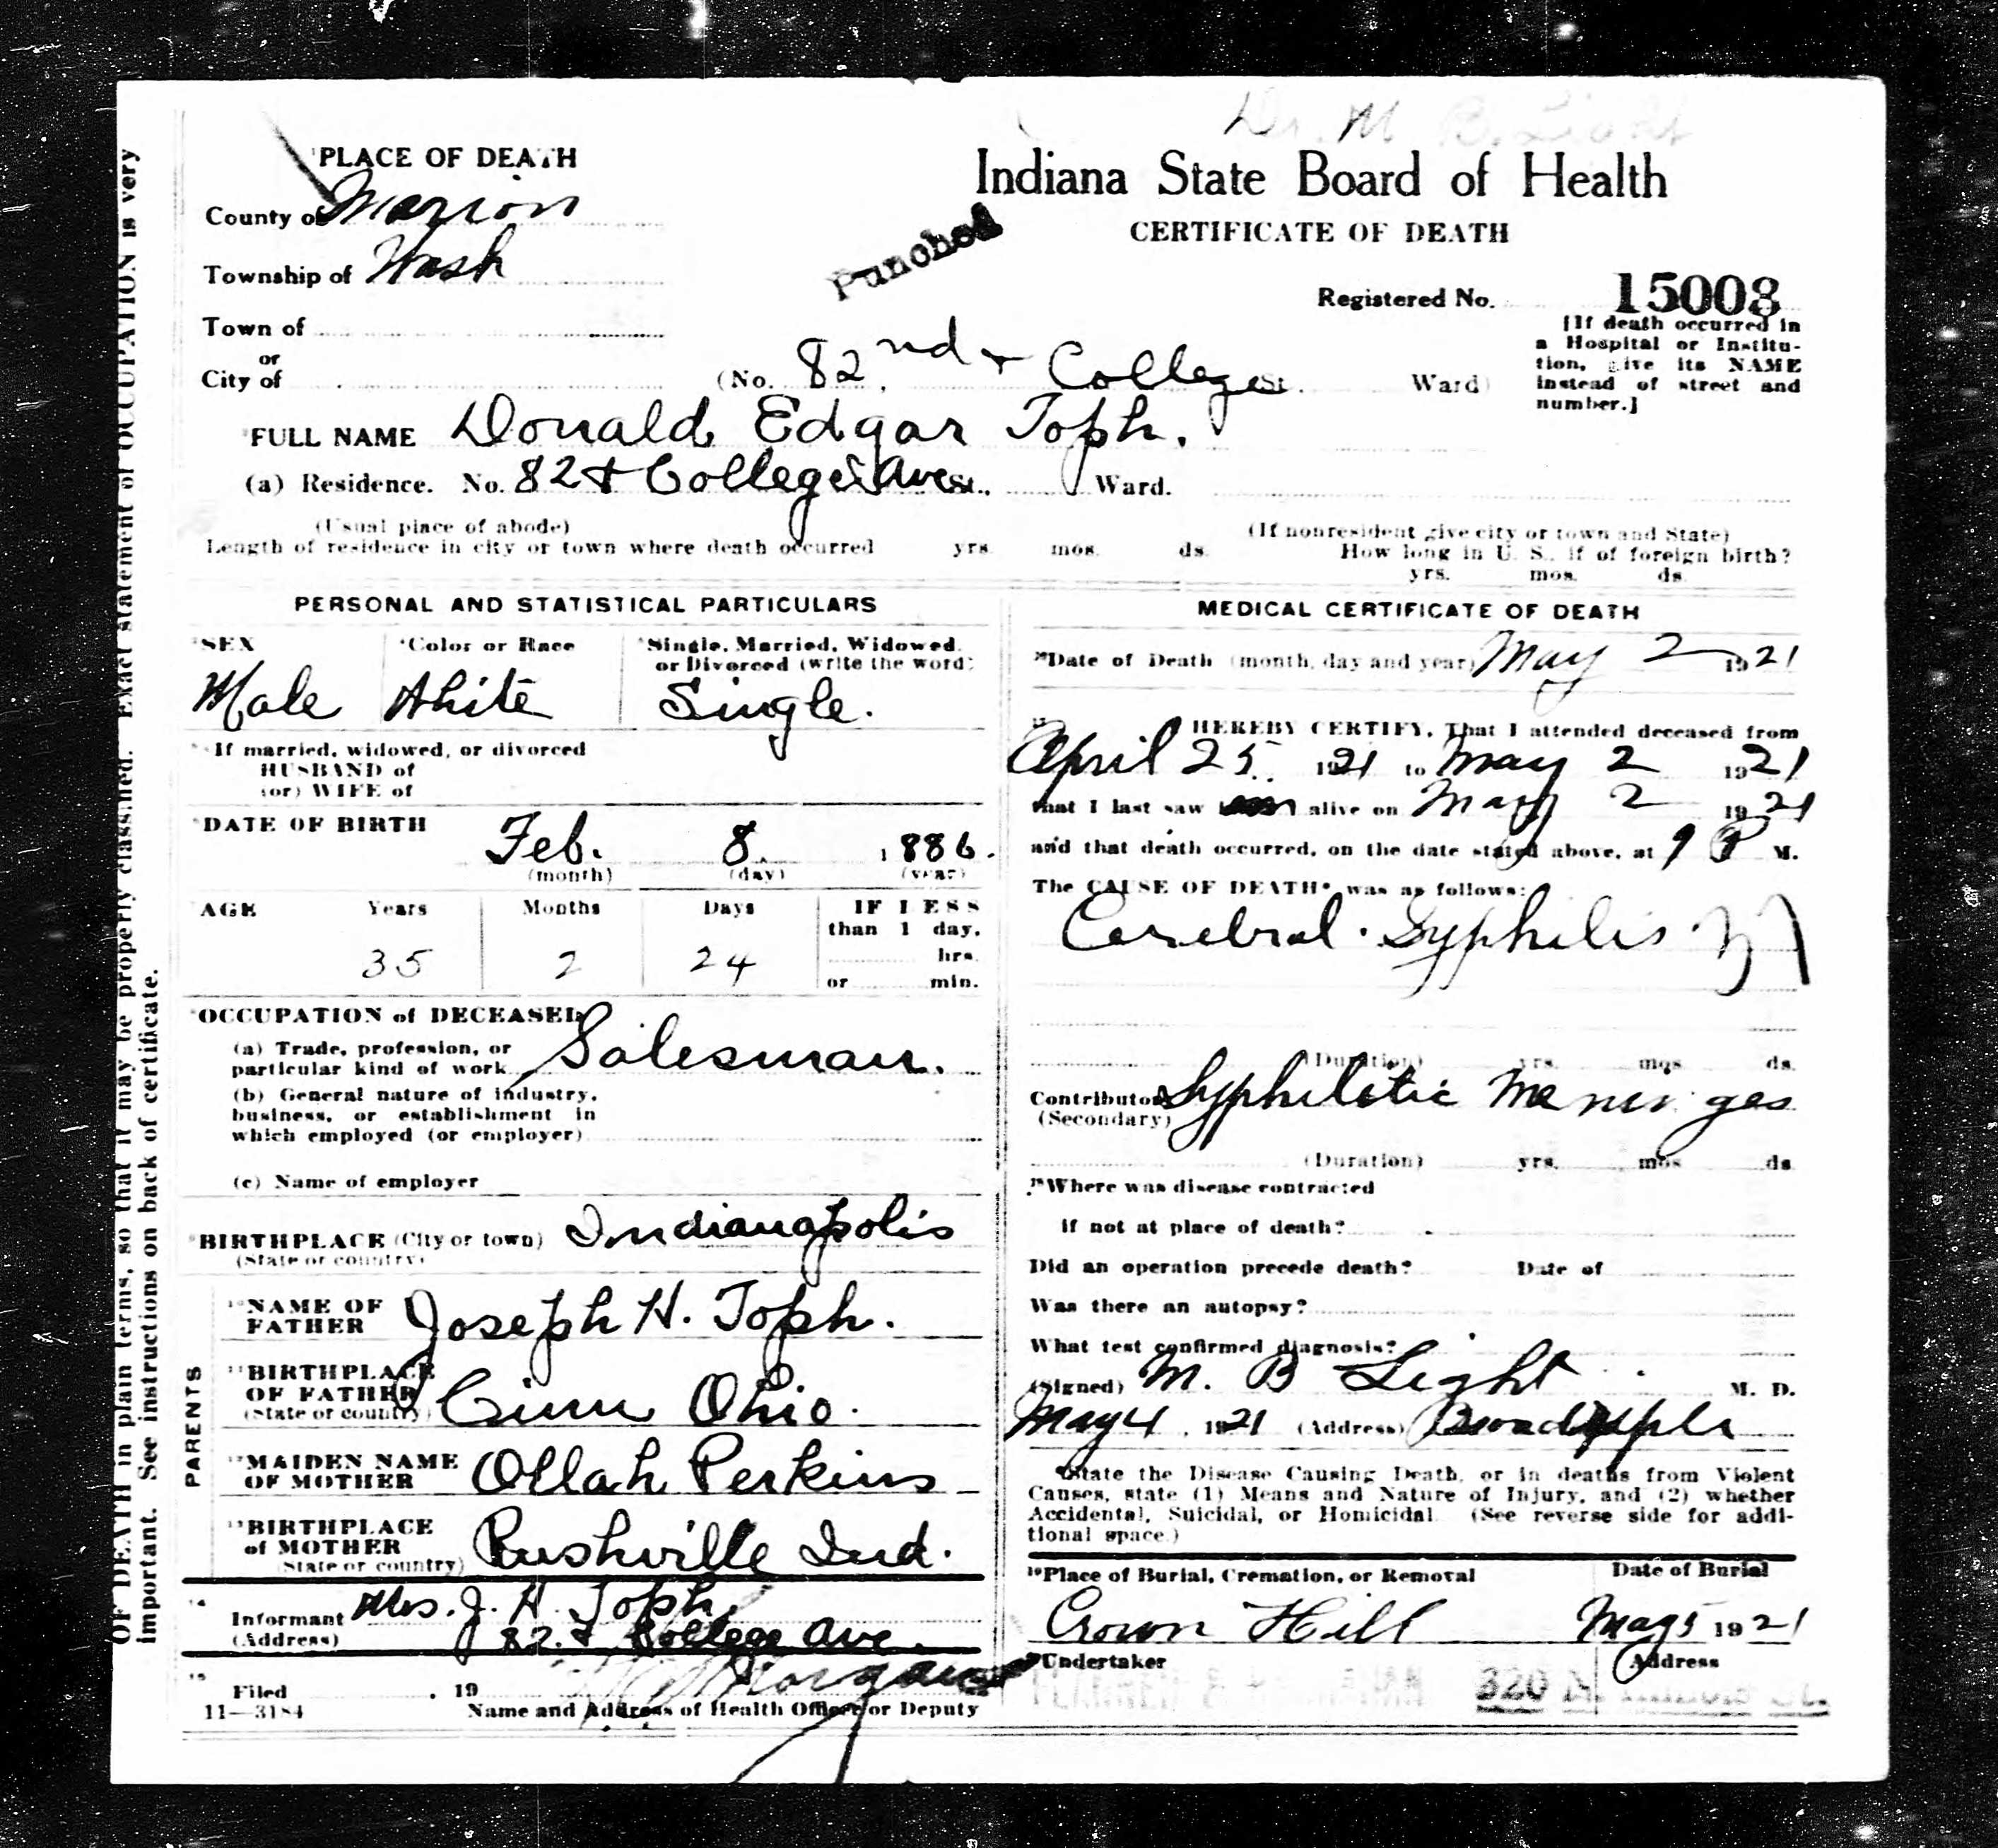 Dr. M B. Light
PLACE OF DEATH
Indiana State Board of Health
County of Marion
CERTIFICATE OF DEATH
Township of Wash
Punched
Registered No. 15008
Town of
or
City of (No. 82nd + College St. Ward)
[If death occurred in
a Hospital or Institu-
tion, give its NAME
instead of street and
number.]
FULL NAME Donald Edgar Toph.
(a) Residence. No. 82 + College Ave St., Ward.
(Usual place of abode) (If nonresident give city or town and State)
Length of residence in city or town where death occurred yrs. mos. ds. How long in U. S., if of foreign birth?
yrs. mos. ds.
PERSONAL AND STATISTICAL PARTICULARS
SEX Color or Race Single, Married, Widowed,
or Divorced (write the word)
Male White Single.
If married, widowed, or divorced
HUSBAND of
(or) WIFE of
DATE OF BIRTH Feb. 8. 1886.
(month) (day) (year)
AGE Years Months Days IF LESS
than 1 day,
hrs.
35 2 24
or min.
OCCUPATION of DECEASED
(a) Trade, profession, or
particular kind of work Salesman.
(b) General nature of industry,
business, or establishment in
which employed (or employer)
(c) Name of employer
BIRTHPLACE (City or town) Indianapolis
(State or country)
PARENTS
NAME OF
FATHER Joseph H. Toph.
BIRTHPLACE
OF FATHER
(State or country) Cinn Ohio.
MAIDEN NAME
OF MOTHER Ollah Perkins
BIRTHPLACE
of MOTHER
(State or country) Rushville Ind.
Informant Mrs. J. H. Toph
(Address) 82 + College Ave.
Filed , 19 Morgan
11—3184 Name and Address of Health Officer or Deputy
MEDICAL CERTIFICATE OF DEATH
Date of Death (month, day and year) May 2 1921
HEREBY CERTIFY, That I attended deceased from
April 25. 1921 to May 2 1921
that I last saw him alive on May 2 1921
and that death occurred, on the date stated above, at 9 P M.
The CAUSE OF DEATH* was as follows:
Cerebral Syphilis
(Duration) yrs. mos. ds.
Contributory Syphilitic Meninges
(Secondary)
(Duration) yrs. mos. ds.
Where was disease contracted
if not at place of death?
Did an operation precede death? Date of
Was there an autopsy?
What test confirmed diagnosis?
(Signed) M. B Light M. D.
May 4, 1921 (Address) Broad Ripple
*State the Disease Causing Death, or in deaths from Violent
Causes, state (1) Means and Nature of Injury, and (2) whether
Accidental, Suicidal, or Homicidal. (See reverse side for addi-
tional space.)
Place of Burial, Cremation, or Removal Date of Burial
Crown Hill May 5 1921
Undertaker Address
320 N. Illinois St.
OF DEATH in plain terms, so that it may be properly classified. Exact statement of OCCUPATION is very
important. See instructions on back of certificate.